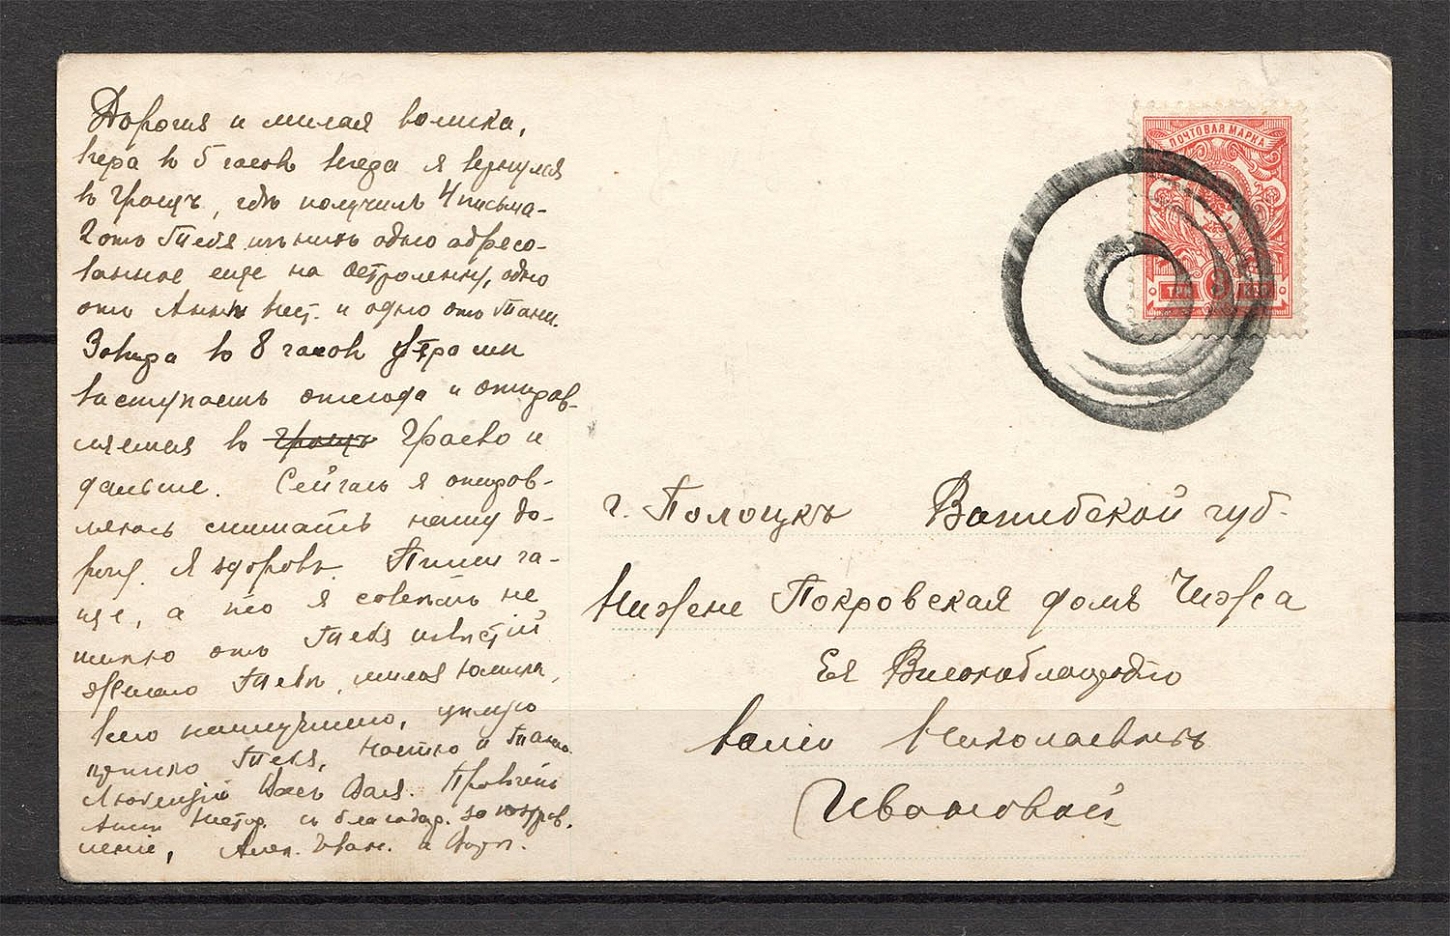 Дорогая и милая
вчера в 5 часовъ я вернулся
въ , где получилъ 4 письма-
2 отъ Тебя, изъ нихъ одно адресо-
ванное еще на Остроленку, одно
отъ Анны и одно отъ Тани.
Завтра в 8 часов утра мы
выступаемъ отсюда и отправ-
ляемся в Граево и
дальше. Сейчасъ я отправ-
ляюсь снимать нашу до-
рогу. Я здоровъ. Пиши ча-
ще, а то я совсемъ не
отъ Тебя извѣстій
Тебѣ, милая
всего наилучшего, целую
крепко Тебя, и Таню.
Любящій Васъ Ваня.
благодар. за поздрав-
ление, Алек. Иван. и
ПОЧТОВАЯ МАРКА
ТРИ 3 КОП
г. Полоцкъ Витебской губ.
Нижне Покровская домъ Чижа
Ея Высокоблагородію
Николаевнѣ
Ивановой